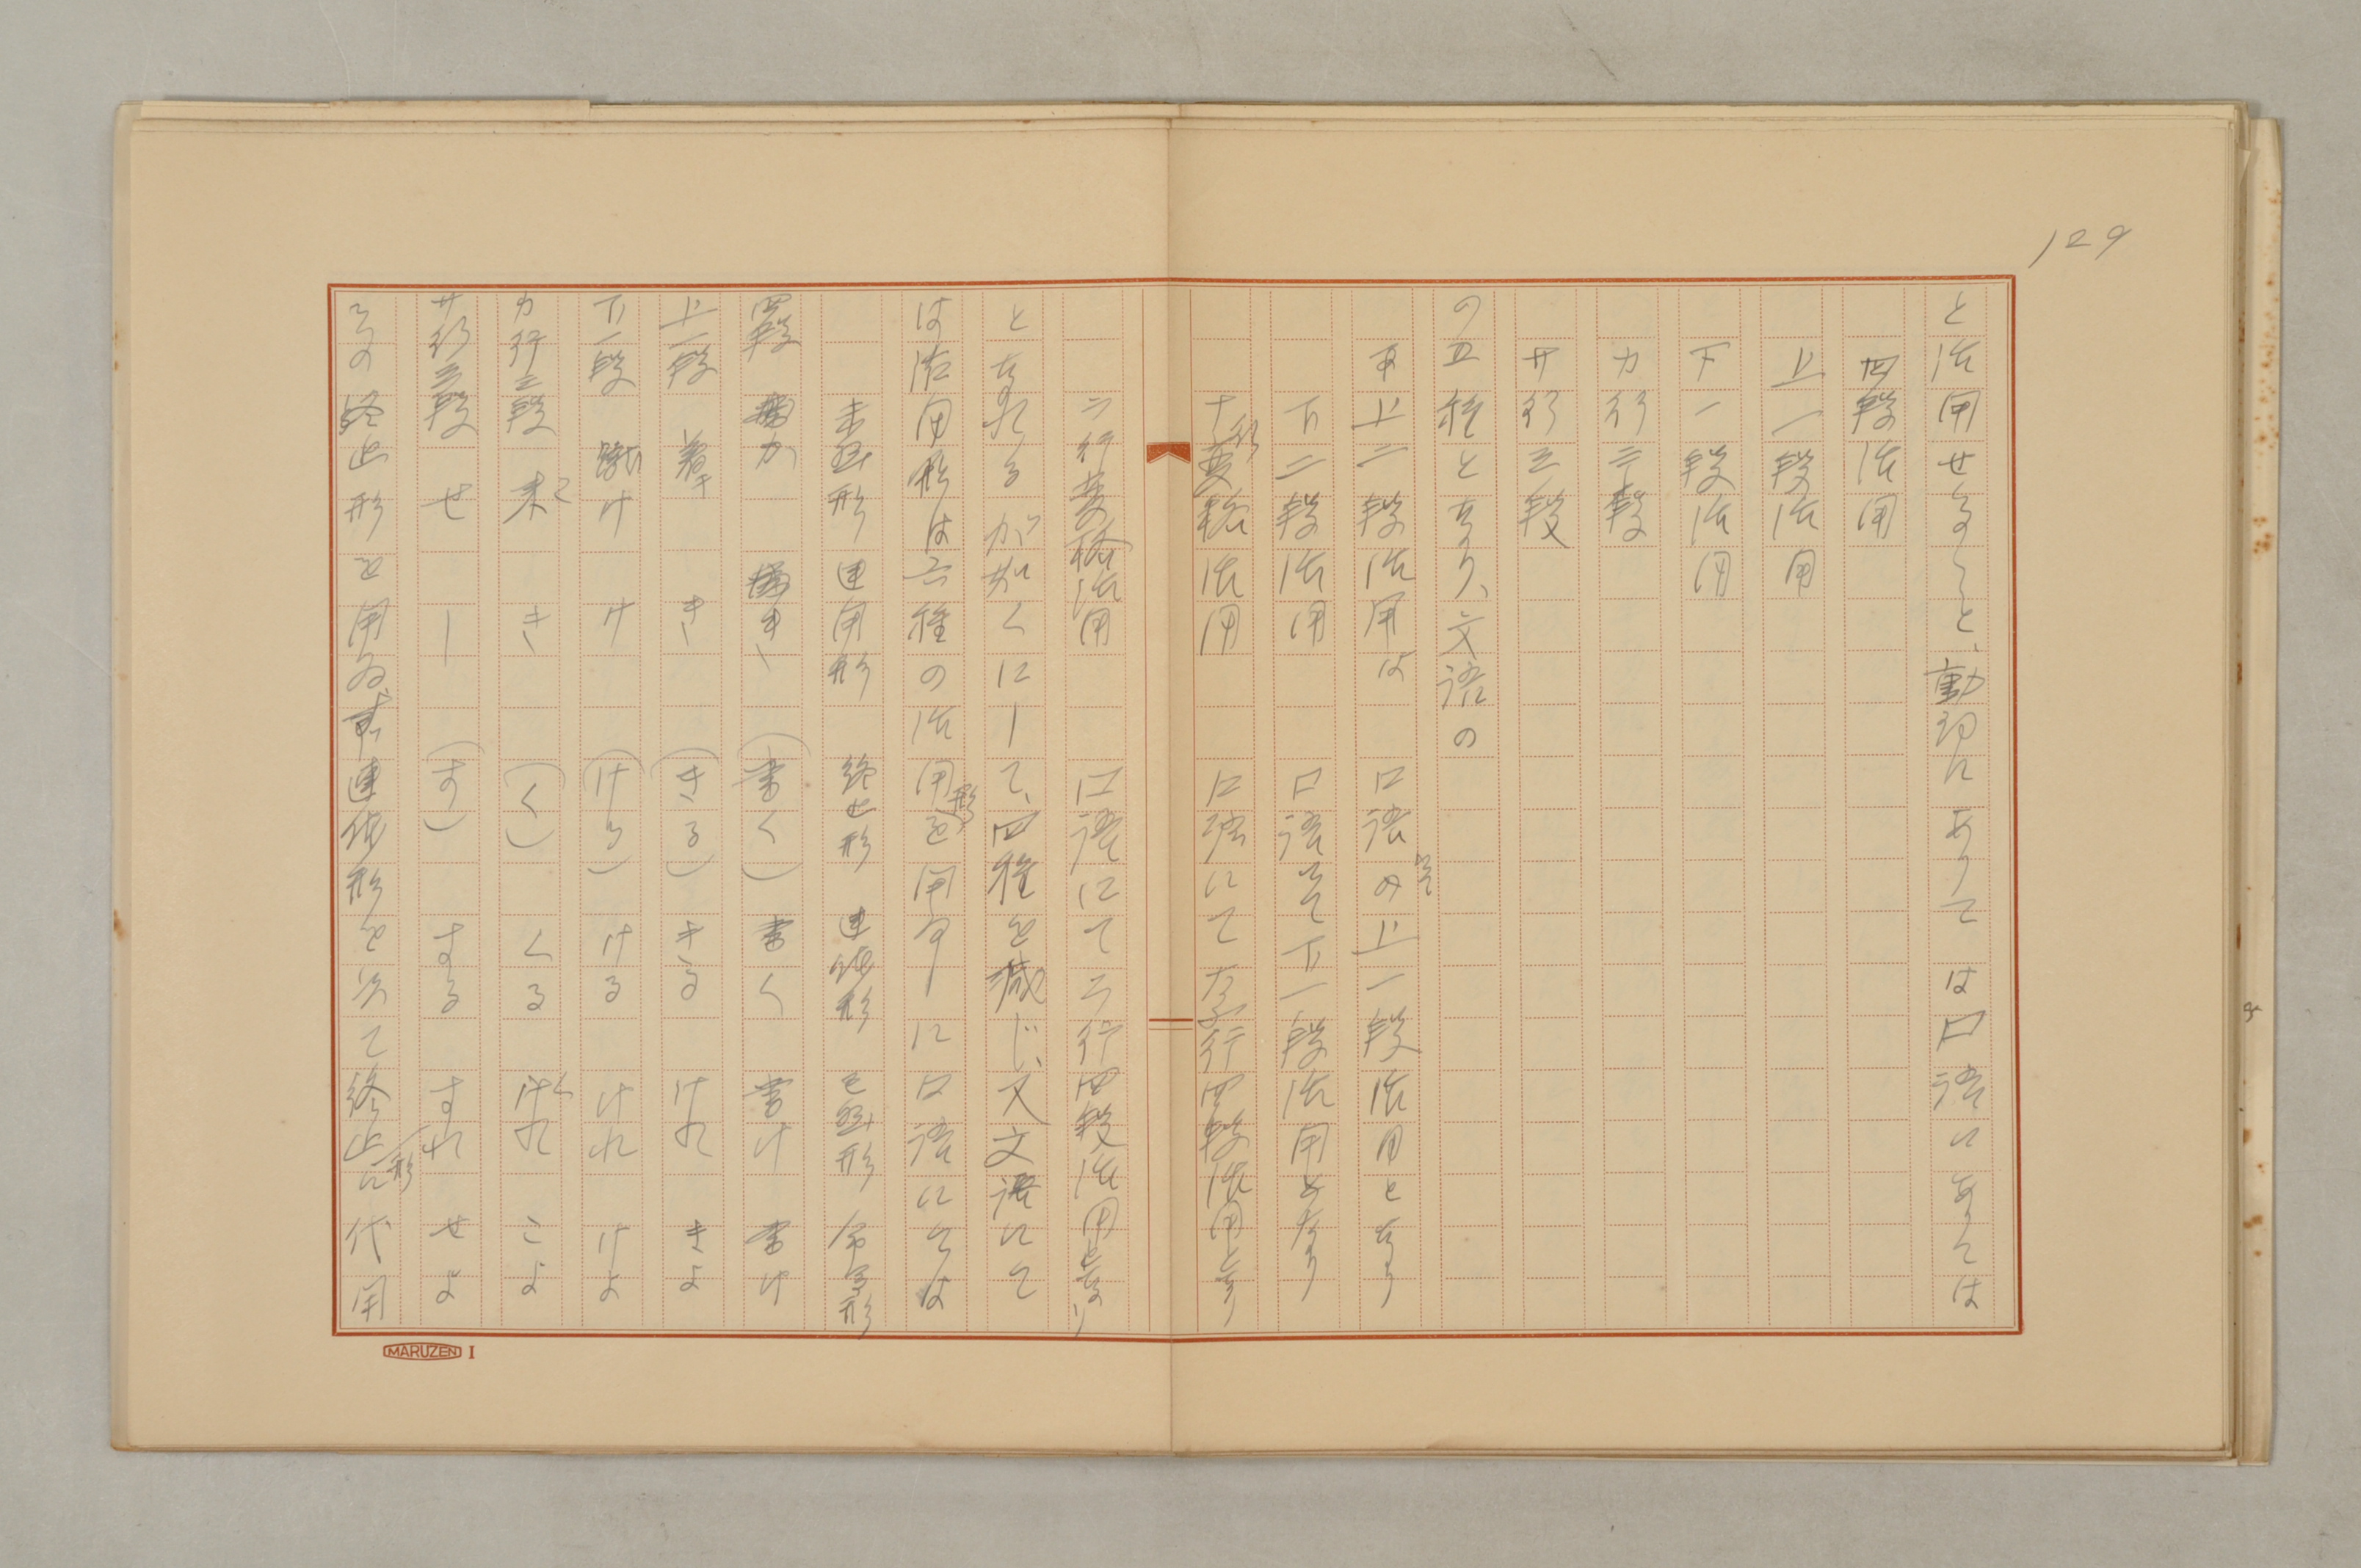 129
と活用せること、動詞にありては口語にありては
四段活用
上一段活用
下一段活用
カ行三段
サ行三段
の五種となり、文語の
上二段活用は 口語の上一段活用となり
下二段活用 口語にて下一段活用となり
ナ行変格活用 口語にてナ行四段活用となり
ラ行変格活用 口語にてラ行四段活用となり
となれるが如くにして、四種を減じ、又文語にて
は活用形は六種の活用形を用ゐしに口語にては
未然形 連用形 終止形 連体形 已然形 命令形
四段 書か 書き (書く) 書く 書け 書け
上一段 着き き (きる) きる けれ きよ
下一段 蹴け け (ける) ける けれ けよ
カ行三段 来こ き (く) くる くれ こよ
サ行三段 せ し (す) する すれ せよ
その終止形を用ゐず連体形を以て終止形に代用
MARUZEN I